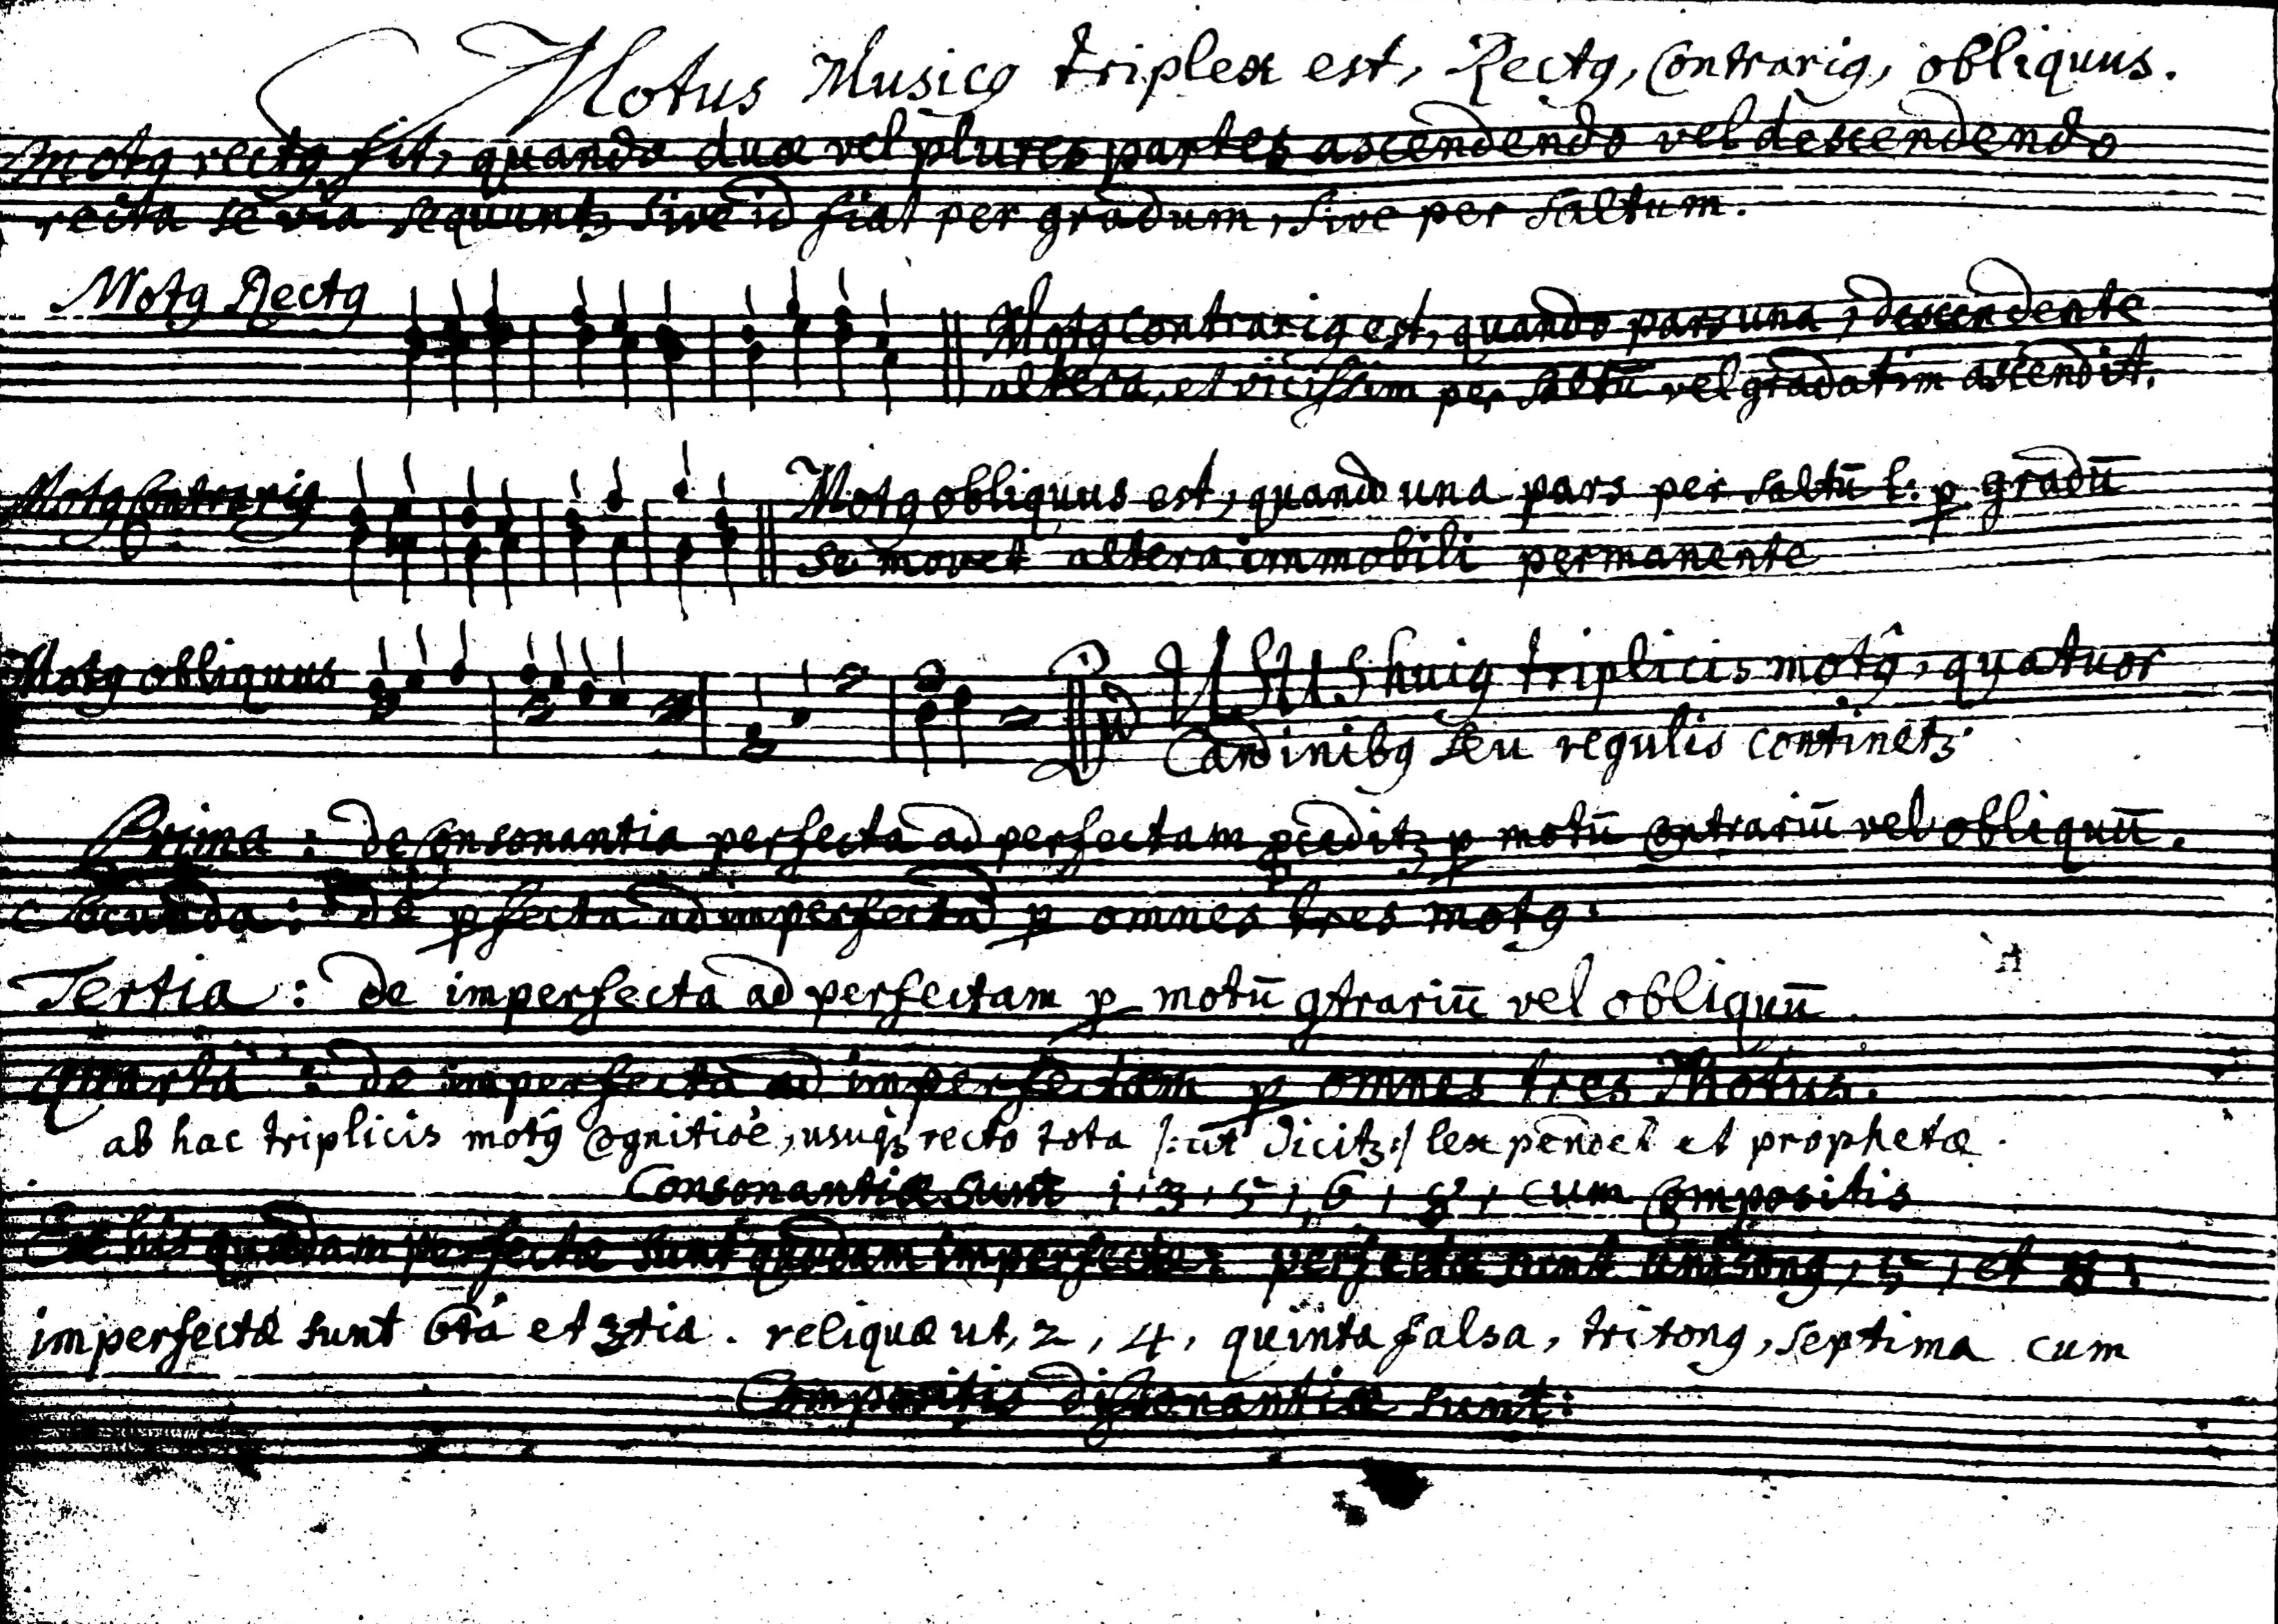 Motus Musicꝰ triplex est, Rectꝰ, Contrariꝰ, obliquus.
Motꝰ rectꝰ fit, quando duæ vel plures partes ascendendo vel descendendo
recta se via sequuntꝫ sive id fiat per gradum, sive per saltum.
Motꝰ Rectꝰ
Motꝰ contrariꝰ est, quando pars una, descendente
altera, et vicissim per saltū vel gradatim ascendit.
Motꝰ Contrariꝰ
Motꝰ obliquus est, quando una pars per saltū l: ꝑ gradū
se movet altera immobili permanente
Motꝰ obliquus
USUS huiꝰ triplicis motꝰ, quatuor
Cardinibꝰ seu regulis continetꝫ
Prima: de Consonantia perfecta ad perfectam ꝓceditꝫ ꝑ motū contrariū vel obliquū.
Secunda: de ꝑfecta ad imperfectā ꝑ omnes tres motꝰ.
Tertia: de imperfecta ad perfectam ꝑ motū ꝯtrariū vel obliquū
Quarta: de imperfecta ad imperfectam ꝑ omnes tres Motus.
ab hac triplicis motꝰ cognitiōe, usuqꝫ recto tota /: ut dicitꝫ :/ lex pendet et prophetæ.
Consonantiæ sunt 1, 3, 5, 6, 8, cum compositis
Ex his quædam perfectæ sunt quædam imperfectæ: perfectæ sunt unisonꝰ, 5, et 8:
imperfectæ sunt 6ta et 3tia. reliquæ ut, 2, 4, quinta falsa, tritonꝰ, septima cum
Compositis dissonantiæ sunt: